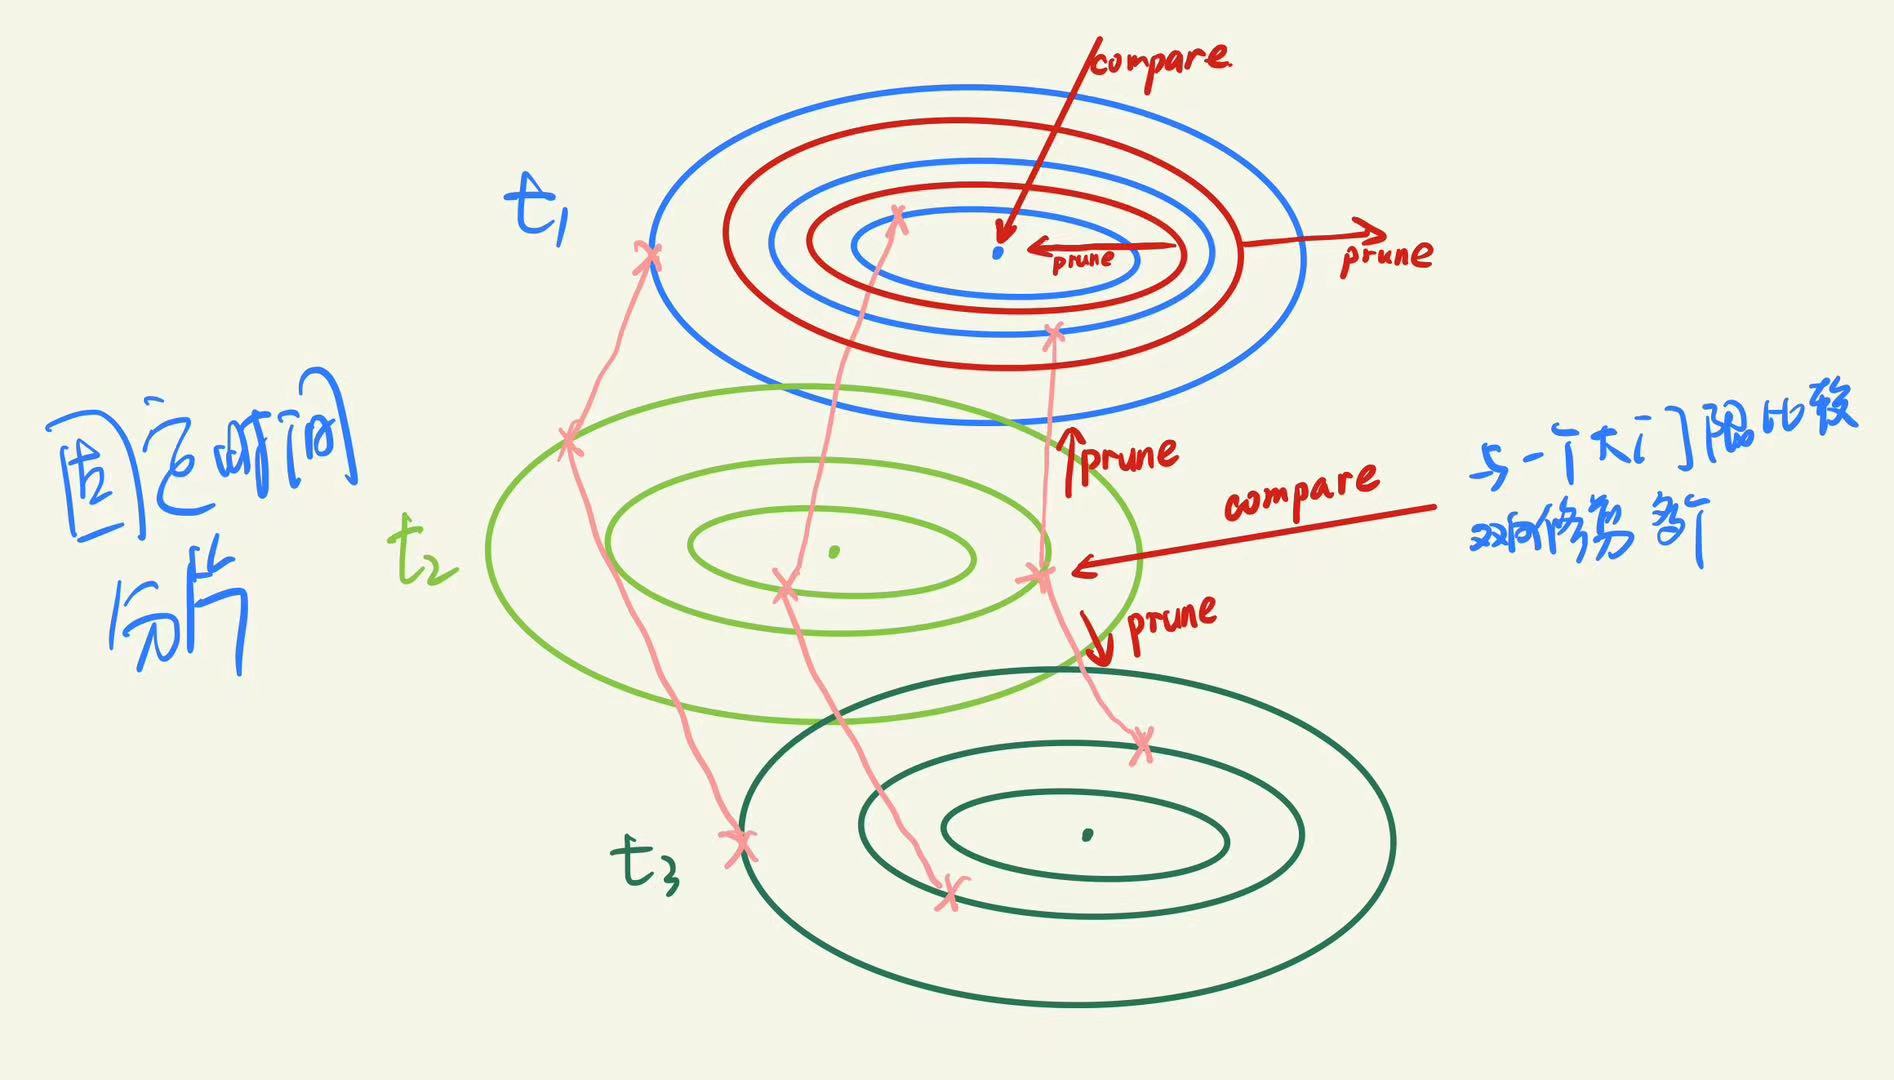 compare
t1
prune
prune
固定时间
分片
prune
compare
与一个大门限比较
双向修剪多个
t2
prune
t3